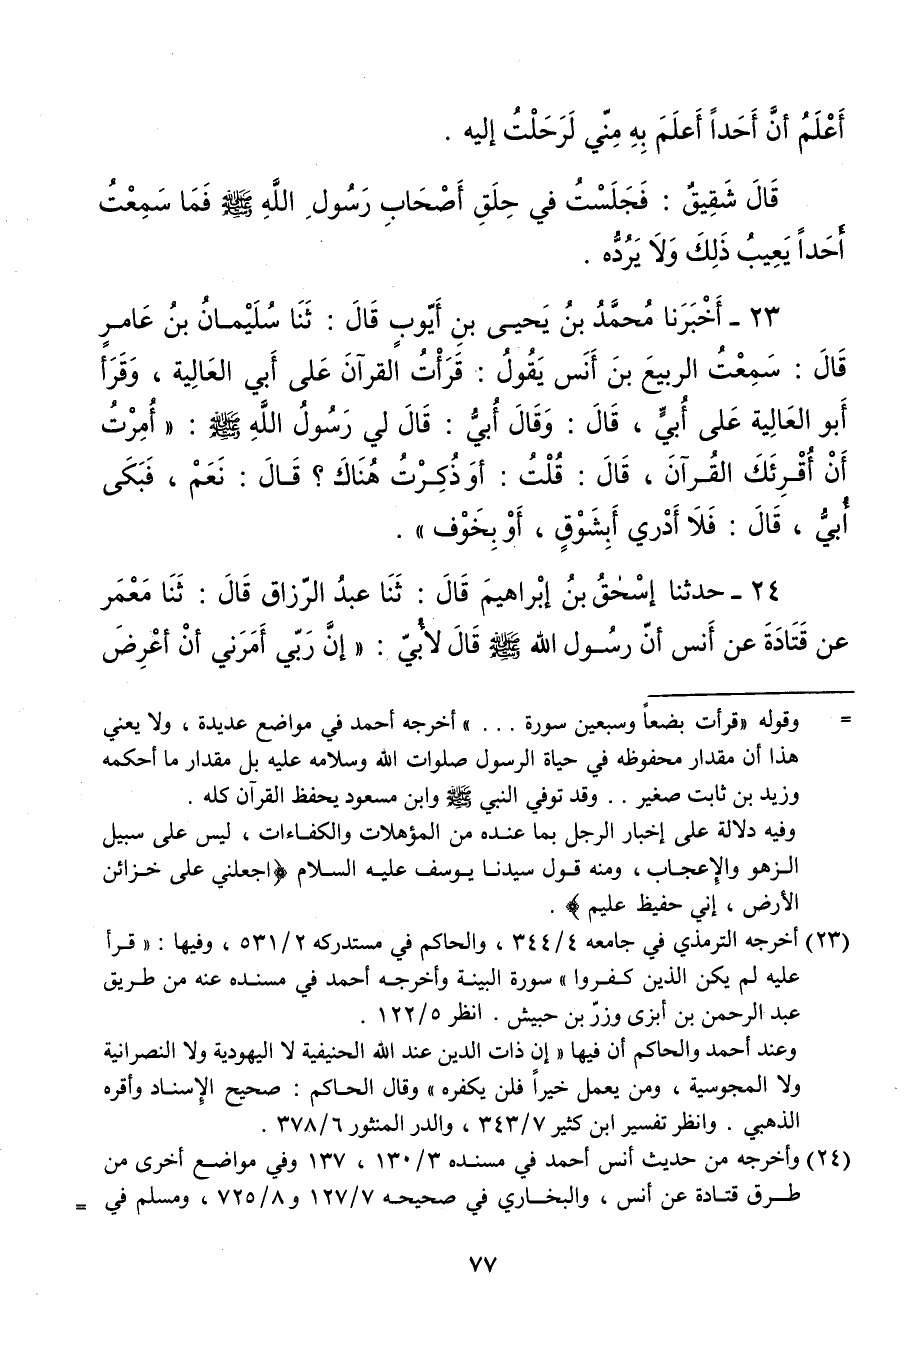 أَعْلَمُ أنَّ أَحَداً أَعلَمَ بِهِ مِنّي لَرَحَلْتُ إليه .
قَالَ شَقِيقٌ : فَجَلَسْتُ في حِلَقِ أَصْحَابِ رَسُولِ اللَّهِ ﷺ فَمَا سَمِعْتُ
أَحَداً يَعِيبُ ذَلِكَ وَلَا يَرُدُّه .
٢٣ ـ أَخْبَرَنا مُحمَّدُ بنُ يَحيى بنِ أَيّوبٍ قَالَ : ثَنَا سُلَيْمانُ بنُ عَامرٍ
قَالَ : سَمِعْتُ الربيعَ بنَ أَنَس يَقُولُ : قَرَأْتُ القرآنَ عَلى أَبي العَالِية ، وَقَرَأ
أَبو العَالِية عَلى أُبيٍّ ، قَالَ : وَقَالَ أُبيُّ : قَالَ لي رَسُولُ اللَّهِ ﷺ : « أُمِرْتُ
أَنْ أُقْرِئَكَ القُرآنَ ، قَالَ : قُلْتُ : أوَ ذُكِرْتُ هُنَاكَ ؟ قَالَ : نَعَمْ ، فَبَكَى
أُبيُّ ، قَالَ : فَلَا أَدْري أَبِشَوْقٍ ، أَوْ بِخَوْف » .
٢٤ ـ حدثنا إسْحٰقُ بنُ إبْراهيمَ قَالَ : ثَنَا عبدُ الرّزاق قَالَ : ثَنَا مَعْمَر
عن قَتَادَةَ عن أَنس أنّ رسُول الله ﷺ قَالَ لأُبيّ : « إنَّ رَبّي أمَرَني أنْ أعْرِضَ
= وقوله «قرأت بضعاً وسبعين سورة . . . » أخرجه أحمد في مواضع عديدة ، ولا يعني
هذا أن مقدار محفوظه في حياة الرسول صلوات الله وسلامه عليه بل مقدار ما أحكمه
وزيد بن ثابت صغير . . وقد توفي النبي ﷺ وابن مسعود يحفظ القرآن كله .
وفيه دلالة على إخبار الرجل بما عنده من المؤهلات والكفاءات ، ليس على سبيل
الزهو والإعجاب ، ومنه قول سيدنا يوسف عليه السلام ﴿اجعلني على خزائن
الأرض ، إني حفيظ عليم ﴾ .
(٢٣) أخرجه الترمذي في جامعه ٣٤٤/٤ ، والحاكم في مستدركه ٥٣١/٢ ، وفيها : « قرأ
عليه لم يكن الذين كفروا » سورة البينة وأخرجه أحمد في مسنده عنه من طريق
عبد الرحمن بن أبزى وزرّ بن حبيش . انظر ١٢٢/٥ .
وعند أحمد والحاكم أن فيها « إن ذات الدين عند الله الحنيفية لا اليهودية ولا النصرانية
ولا المجوسية ، ومن يعمل خيراً فلن يكفره » وقال الحاكم : صحيح الإسناد وأقره
الذهبي . وانظر تفسير ابن كثير ٣٤٣/٧ ، والدر المنثور ٣٧٨/٦ .
(٢٤) وأخرجه من حديث أنس أحمد في مسنده ١٣٠/٣ ، ١٣٧ وفي مواضع أخرى من
طرق قتادة عن أنس ، والبخاري في صحيحه ١٢٧/٧ و ٧٢٥/٨ ، ومسلم في =
٧٧